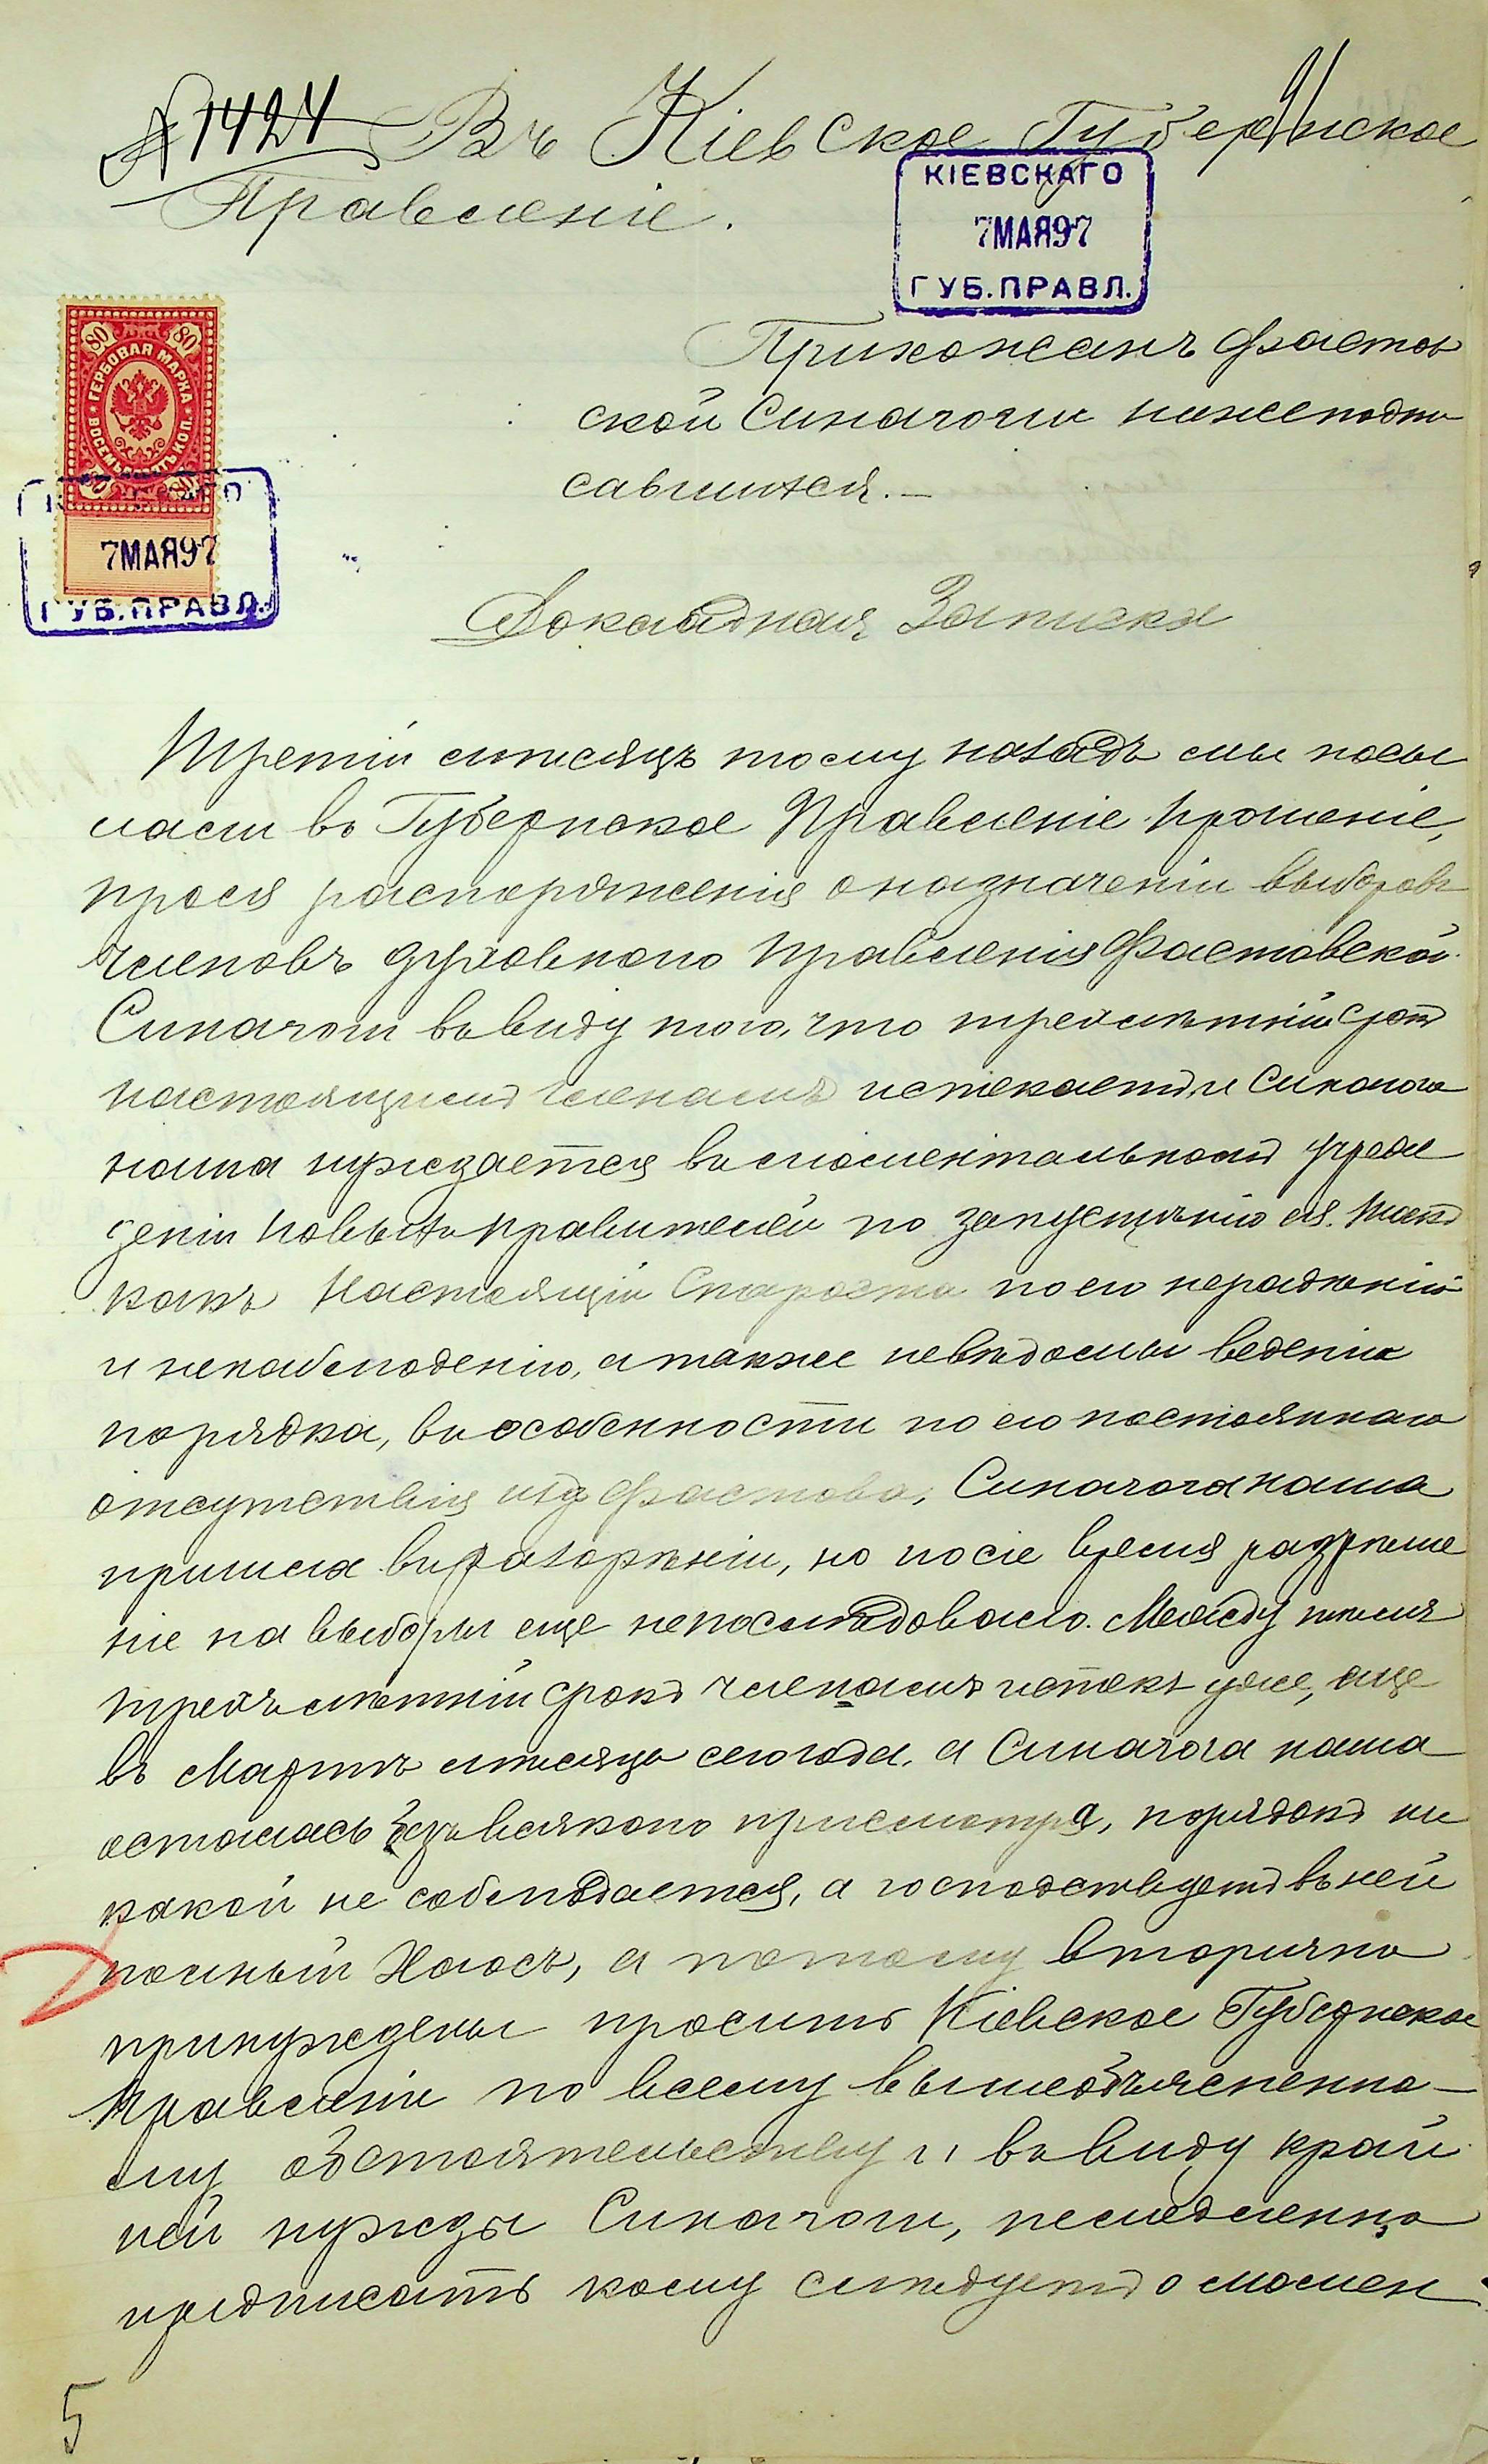 № 1424 Въ Кіевское Губернское
Правленіе.
КІЕВСКАГО
7 МАЯ 97
ГУБ. ПРАВЛ.
80 80
ГЕРБОВАЯ МАРКА
ВОСЕМЬДЕСЯТЪ КОП.
7 МАЯ 97
ГУБ. ПРАВЛ.
Прихожанъ Фастов
ской Синагоги нижеподпи
савшихся. —
Докладная Записка
Третій мѣсяцъ тому назадъ мы посы
лали въ Губернское Правленіе прошеніе,
прося распоряженія о назначеніи выборовъ
членовъ духовного правленія Фастовской
Синагоги въ виду того, что трехлѣтній срокъ
настоящимъ членамъ истекаетъ, и Синагога
наша нуждается въ моментальномъ учреж
деніи новыхъ правителей по запущенію ея. Такъ
какъ Настоящій Староста по его нерадѣнію
и ненаблюденію, а также невѣдомы веденія
порядка, въ особенности по его постоянного
отсутствія изъ Фастова, Синагога наша
пришла въ разорѣніи, но посіе время разрѣше
ніе на выборы еще непослѣдовало. Между тѣмъ
трехълѣтній срокъ членамъ истекъ уже, еще
въ Мартѣ мѣсяцѣ сего года, а Синагога наша
осталась безъ всякого присмотра, порядокъ ни
какой не соблюдается, а господствуетъ въ ней
полный Хаосъ, а потому вторично
принуждены просить Кіевское Губернское
Правленіи по всему вышеобъясненно-
му обстоятельству и въ виду край
ней нужды Синагоги, немедленно
предписать кому слѣдуетъ о момен
5